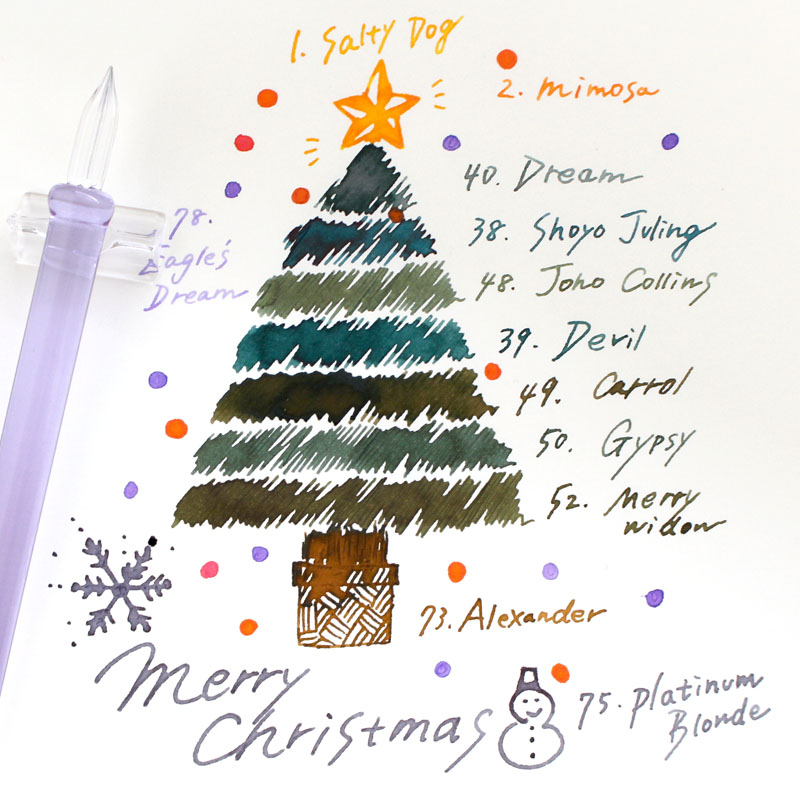 1. Salty Dog
2. mimosa
40. Dream
38. Shoyo Juling
78.
Eagle's
Dream
48. John Collins
39. Devil
49. Carrol
50. Gypsy
52. Merry
widow
73. Alexander
Merry
Christmas
75. Platinum
Blonde